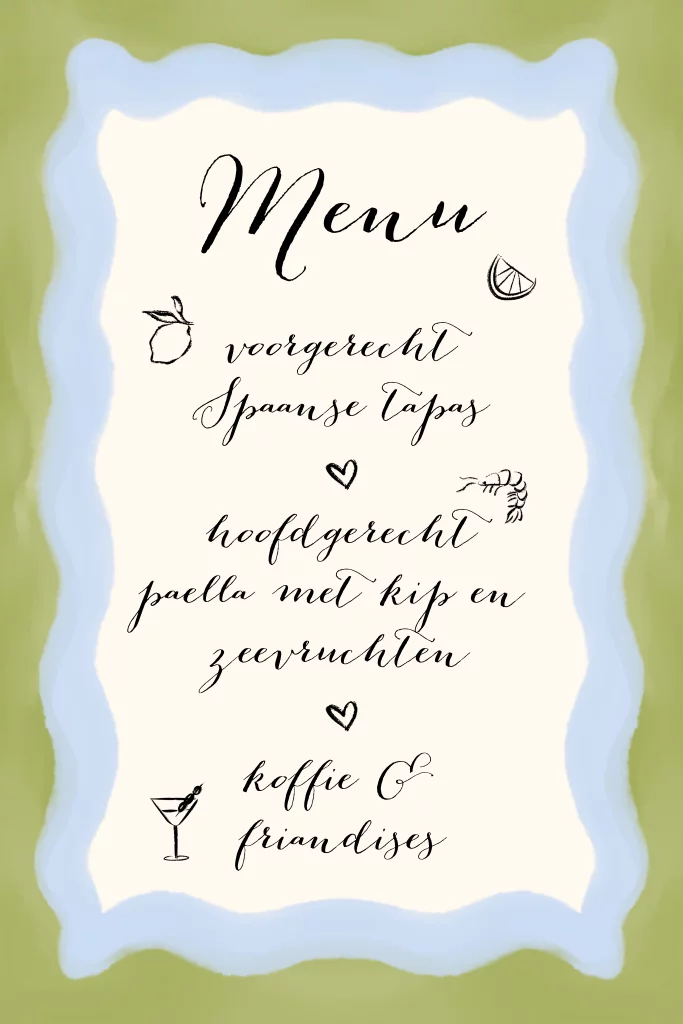 Menu
voorgerecht
Spaanse tapas
hoofdgerecht
paella met kip en
zeevruchten
koffie &
friandises